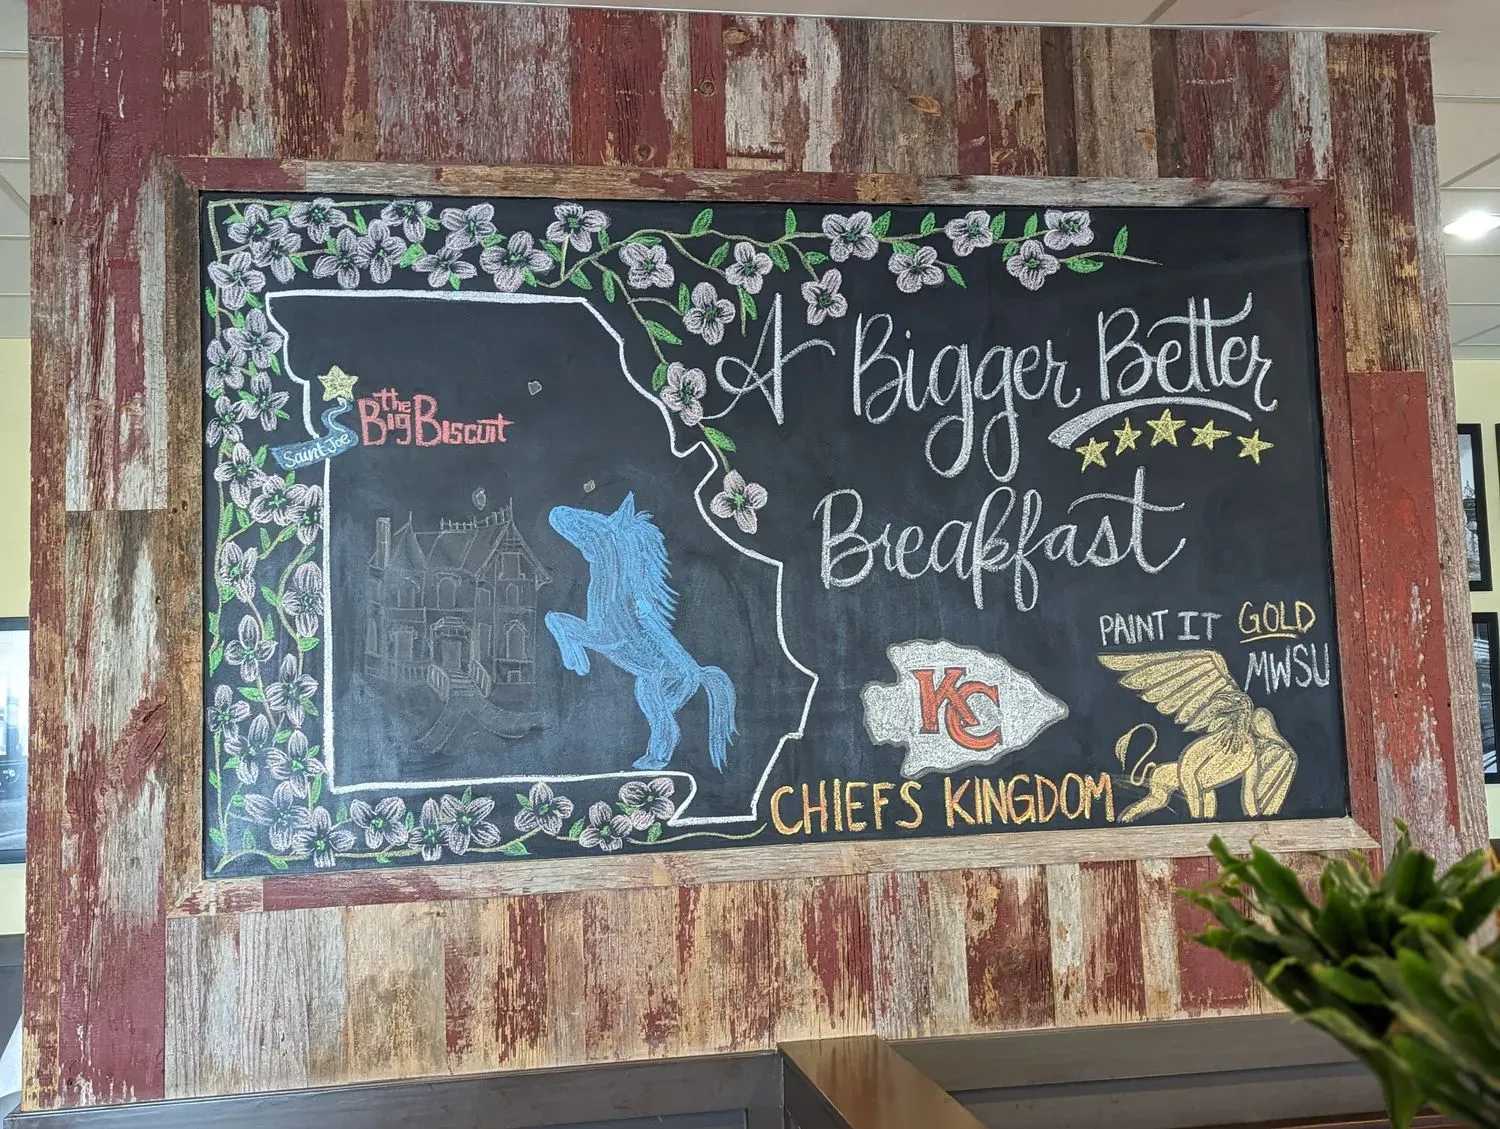 A Bigger Better
Breakfast
the
Big Biscuit
Saint Joe
PAINT IT GOLD
MWSU
KC
CHIEFS KINGDOM